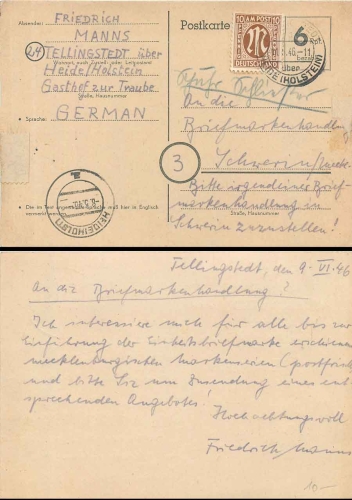 Absender:
FRIEDRICH
MANNS
24 TELLINGSTEDT über
Wohnort, auch Zustell- oder Leitpostamt
Heide/Holstein
Gasthof zur Traube
Straße, Hausnummer
GERMAN
Sprache:
Postkarte
AM POST
DEUTSCHLAND
6
HEIDE(HOLSTEIN)
An die
Briefmarkenhandlung
3
Schwerin
Bitte irgendeiner Brief-
markenhandlung in
Schwerin zuzustellen!
Straße, Hausnummer
HEIDE(HOLST)
Tellingstedt, den 9. VI. 46
An die Briefmarkenhandlung?
Ich interessiere mich für alle bis zur
Einführung der Einheitsbriefmarke erschienenen
mecklenburgischen Markenserien (postfrisch)
und bitte Sie um Zusendung eines ent-
sprechenden Angebotes!
Hochachtungsvoll
Friedrich Manns
10-